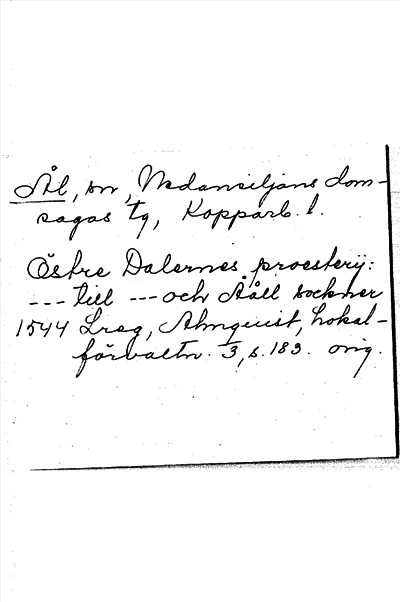 Ål, sn, Nedansiljans dom-
sagas tg, Kopparb. l.
Östre Dalernes proesterij:
--- till --- och Aåll sockner
1544 Lreg, Almquist, Lokal-
förvaltn. 3, s. 183. orig.